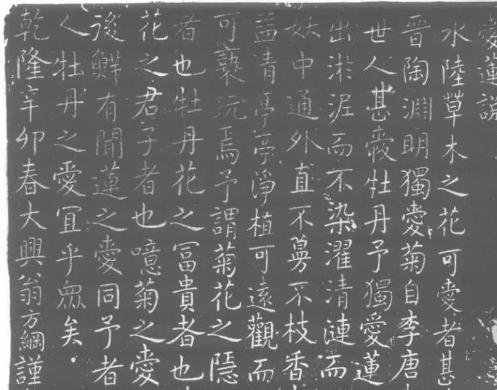 愛蓮說
水陸草木之花可愛者甚
晉陶淵明獨愛菊自李唐
世人甚愛牡丹予獨愛蓮
出淤泥而不染濯清漣而
妖中通外直不蔓不枝香
益清亭亭淨植可遠觀而
可褻玩焉予謂菊花之隱
者也牡丹花之冨貴者也
花之君子者也噫菊之愛
後鮮有聞蓮之愛同予者
人牡丹之愛宜乎眾矣
乾隆辛卯春大興翁方綱謹